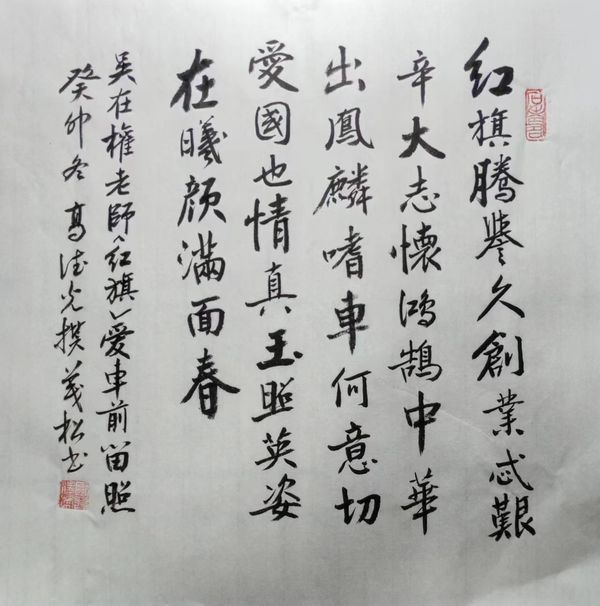 红旗騰誉久創業忒艱
辛大志懷鴻鵠中華
出鳳麟嗜車何意切
愛國也情真玉照英姿
在曦颜滿面春
吴在權老師〈红旗〉愛車前留照
癸卯冬高德光撰義松书